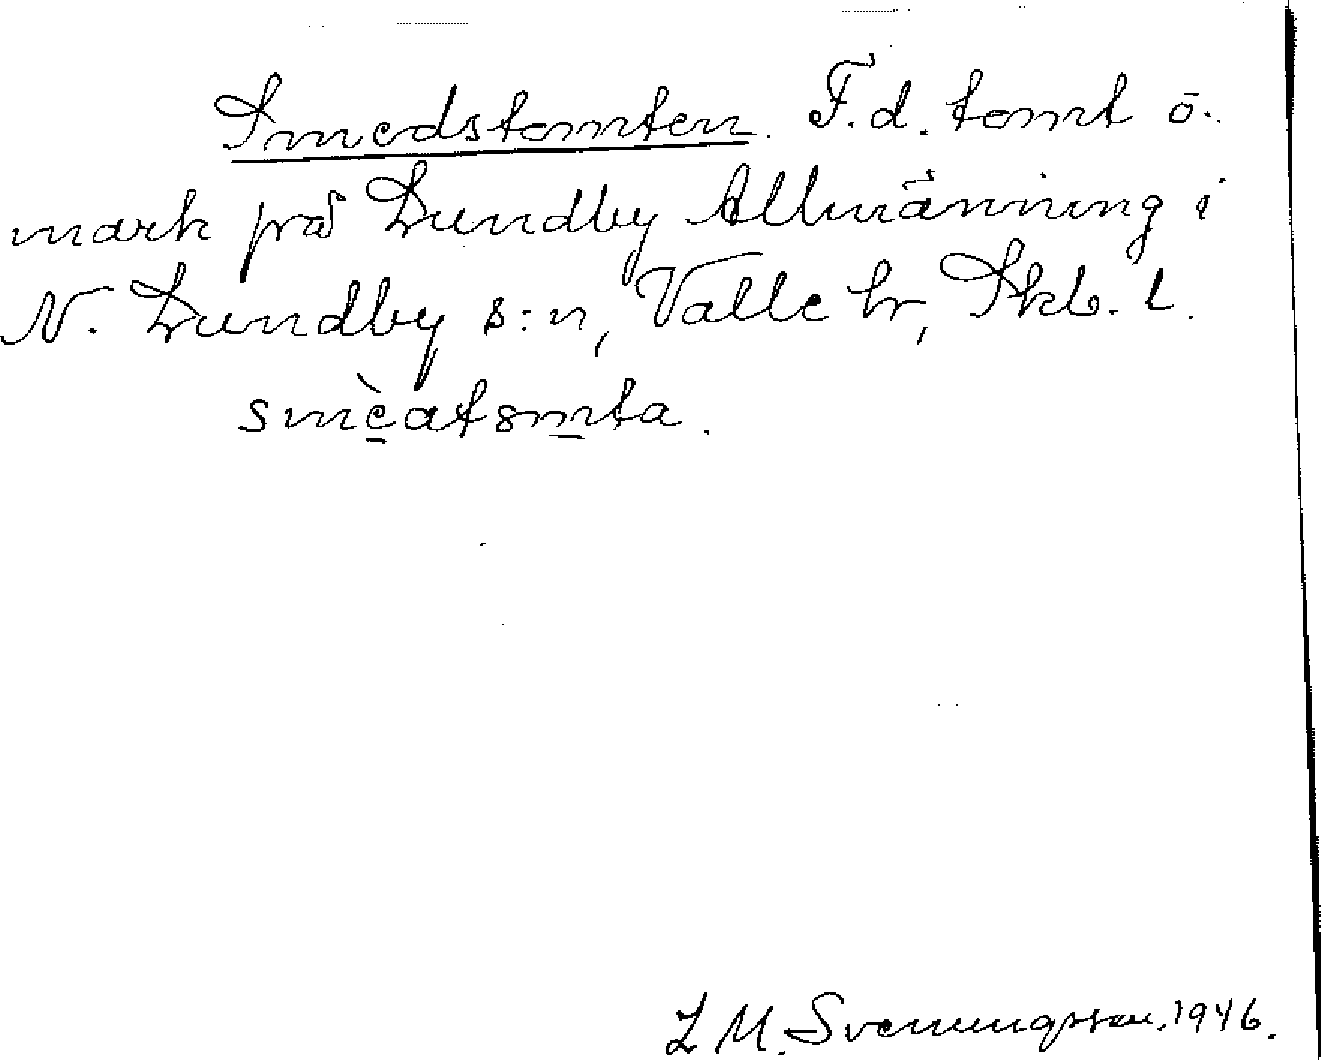 Smedstomten. F.d. tomt ö.
mark på Lundby Allmänning i
N. Lundby s:n, Valle hr, Skb. l.
smèatsmta.
L M. Svenungsson. 1946.